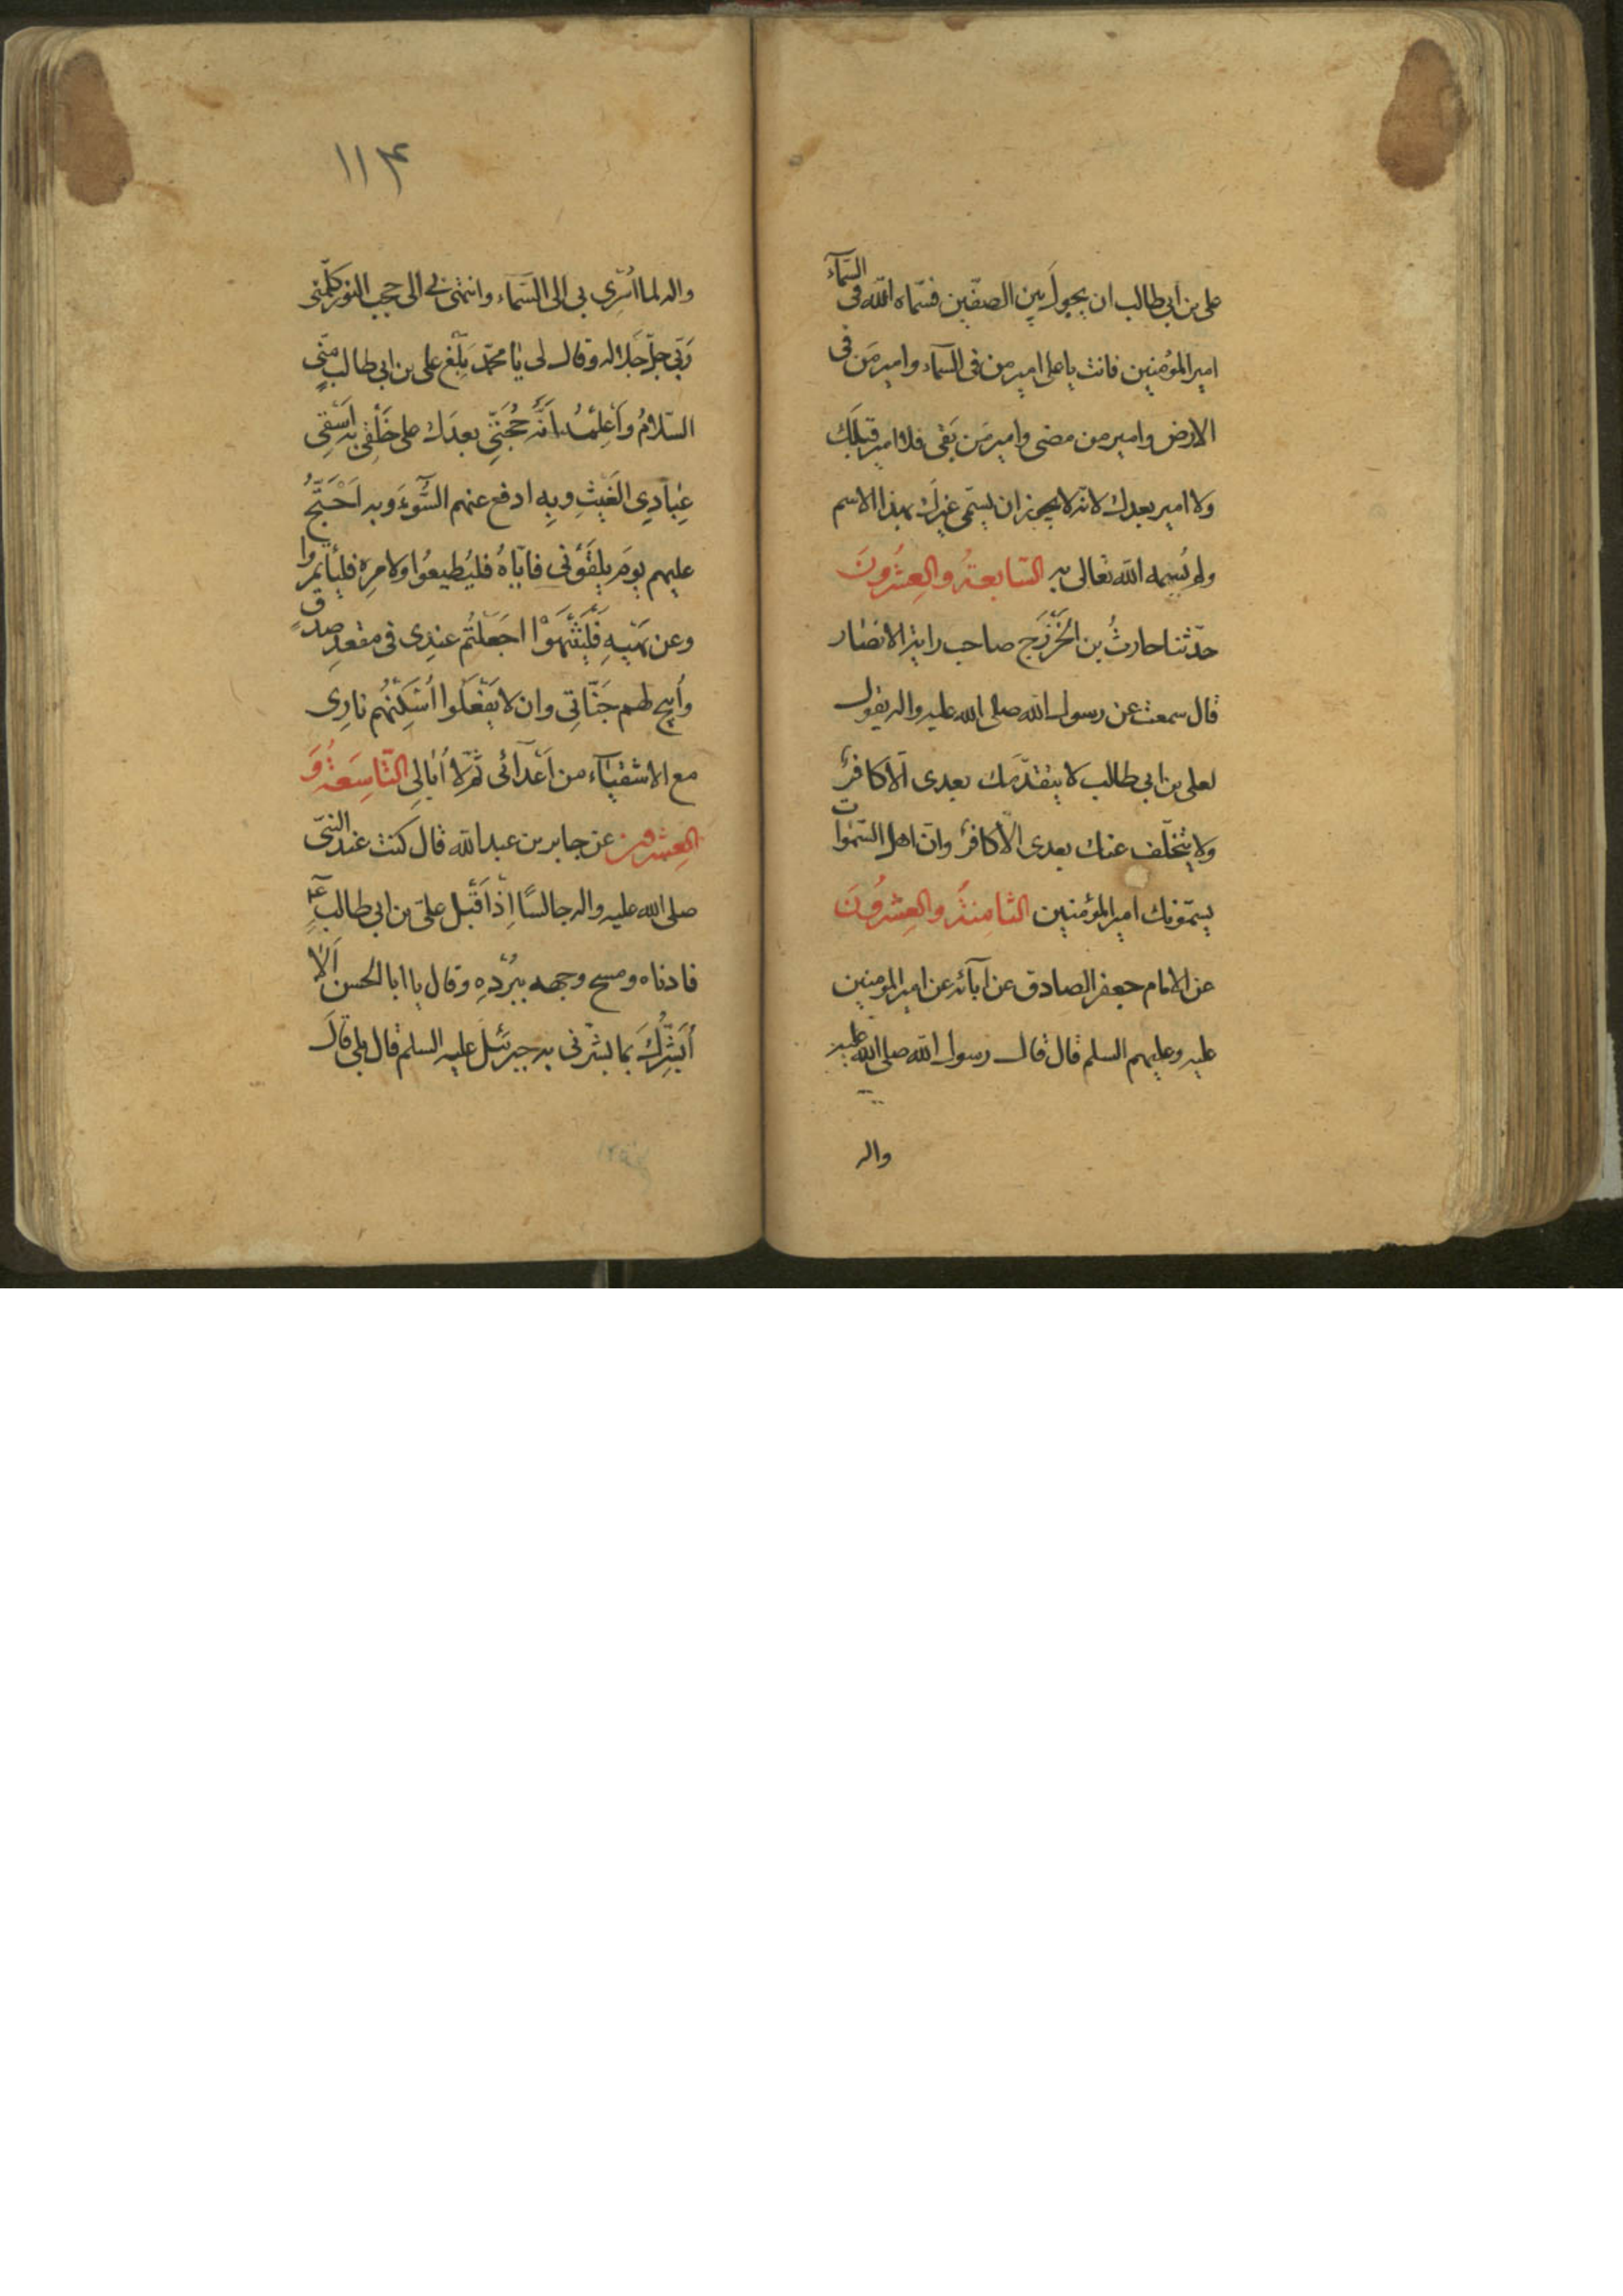 علی بن ابی طالب ان یجول بین الصفّین فسمّاه اللّه فی السّمآء
امیر المؤمنین فانت یا علی امیر من فی السّمآء وامیر مَن فی
الارض وامیر من مضی وامیر مَن بَقی فلا امیر قبلَک
ولا امیر بعدك لانّه لا یجوز ان یسمّی غیرَك بهذا الاسم
ولم یُسمِه اللّه تعالی به السّابعةُ والعِشرُونَ
حدّثنا حارثُ بن الخَزْرَج صاحب رایة الانصار
قال سمعت عن رسول اللّه صلی الله علیه واله یقول
لعلی بن ابی طالب لا یتقدّمك بعدی اَلّا کافرٌ
ولا یتخلّف عنك بعدی الّا کافرٌ وانّ اهل السّموات
یسمّونك امیر المؤمنین الثامِنَةُ والعِشرُونَ
عن الامام جعفر الصادق عن آبائه عن امیر المؤمنین
علیه وعلیهم السلم قال قال رسول اللّه صلی اللّه علیه
واله
۱۱۴
واله لما اُسْرِی بی الی السّماء وانتهی بی الی حجب النور کلّمنی
رَبّی جلّ جَلاله وقال لی یا محمّد بَلّغ علی بن ابی طالب منّی
السّلامُ وَاَعْلِمْهُ اَنَّه حُجّتی بعدَك علی خَلْقِی به اَسْقِی
عِبَادِی الغَیْثَ وبِهِ ادفع عنهم السُّوءَ وبه اَحْتَجُّ
علیهم یومَ یلقَوْنی فایّاهُ فلیُطیعُوا ولامرِه فلیأتمروا
وعن نَهْیِهِ فَلْیَنْتَهَوْا اجعَلْتُم عندِی فی مقعدِ صدقٍ
واُبیح لهم جَنّاتِی وان لا یَفْعَلُوا اُسْکِنْهُم نارِی
مع الاشقیآء من اَعْدآئی ثمّ لا اُبالی التّاسِعَةُ وَ
العِشرون عن جابر بن عبد اللّه قال کنت عند النبیّ
صلی الله علیه واله جالسًا اِذْ اَقْبَل علیّ بن ابی طالب ع
فادناه ومسح وجهه ببُرْدِهِ وقال یا ابا الحسن اَلا
اُبَشِّرُكَ بما بشّرنی به جبرئیل علیه السلم قال بلی قالَ